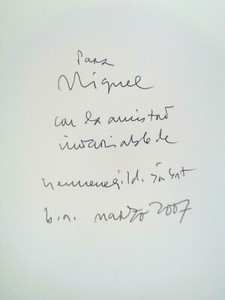 Para
Miguel
con la amistad
invariable de
Hermenegildo Sábat
b.a. marzo 2007